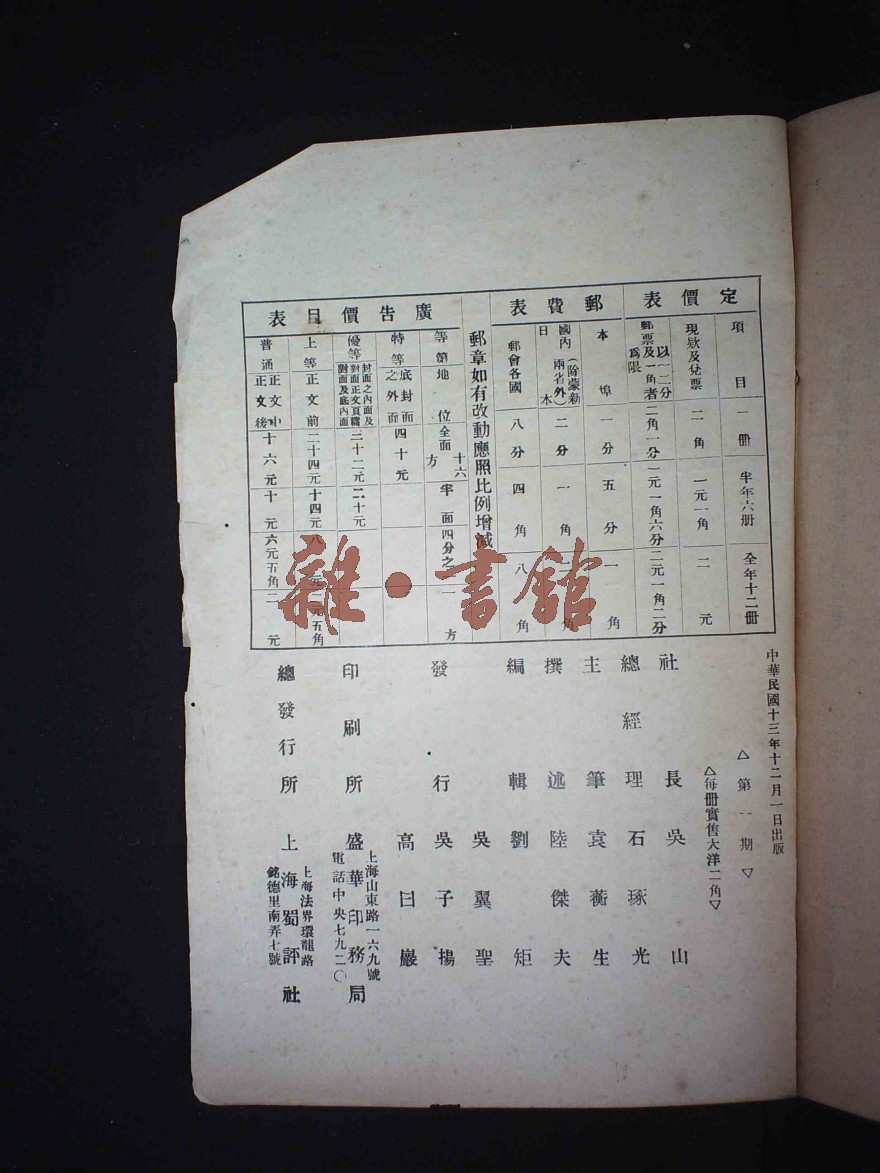 定價表
項目 一冊 半年六冊 全年十二冊
現款及兌票 二角 一元一角 二元
郵票及一角者以一二分爲限 二角一分 一元一角六分 二元一角二分
郵費表
本埠 一分 五分 一角
國內(除蒙新兩省外)日本 二分 一角 二角
郵會各國 八分 四角 八角
郵章如有改動應照比例增減
廣告價目表
等第 地位 全面 半面 四分之一 十六方 一方
特等 底封面之外面 四十元
優等 封面之內面及對面正文頁 對面及底內面 三十二元 二十元
上等 正文前 二十四元 十四元 八元 元五角
普通 正文中正文後 十六元 十元 六元五角 二元
中華民國十三年十二月一日出版
△第一期▽
△每冊實售大洋二角▽
社長 吳山
總經理 石琢光
主筆 袁蘅生
撰述 陸傑夫
編輯 劉矩
吳翼聖
發行 吳子揚
高曰巖
印刷所 盛華印務局
上海山東路一六九號
電話中央七九二〇
總發行所 上海蜀評社
上海法界環龍路
銘德里南弄七號
雜·書館